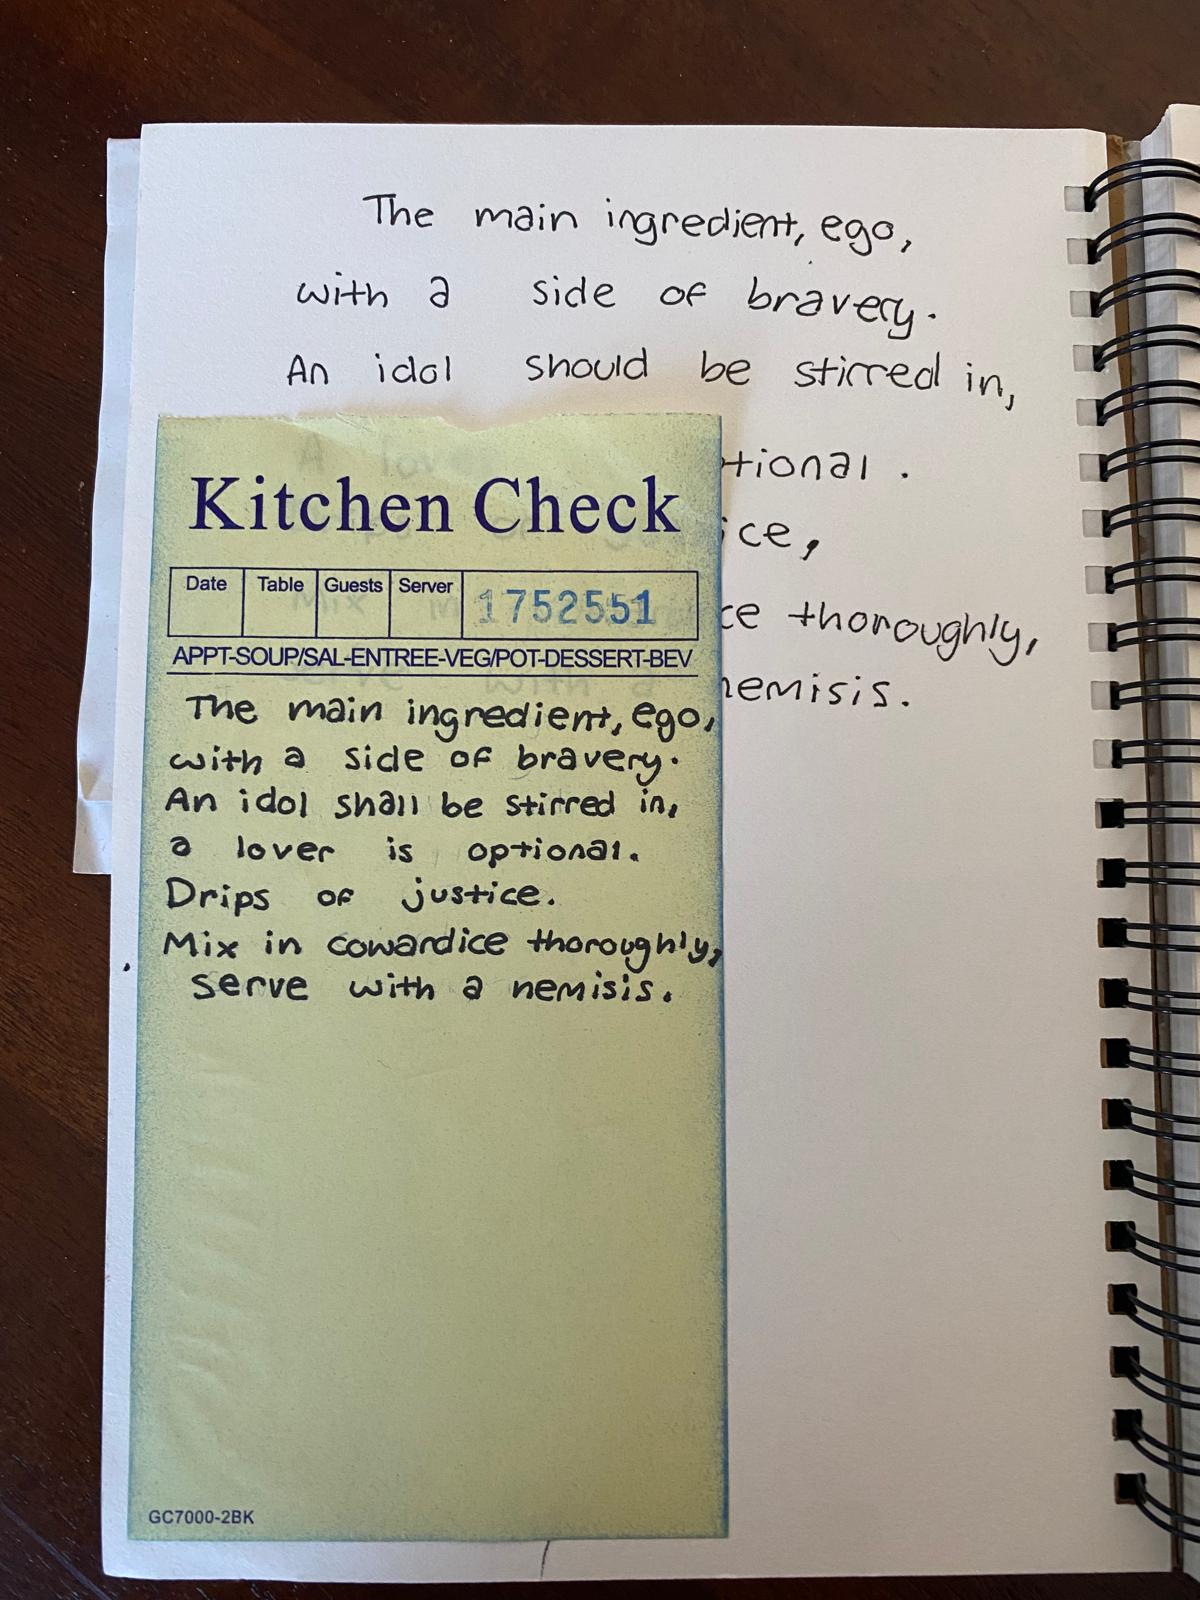 The main ingredient, ego,
with a side of bravery.
An idol should be stirred in,
Kitchen Check
Date Table Guests Server 1752551
APPT-SOUP/SAL-ENTREE-VEG/POT-DESSERT-BEV
The main ingredient, ego,
with a side of bravery.
An idol shall be stirred in,
a lover is optional.
Drips of justice.
Mix in cowardice thoroughly,
serve with a nemisis.
GC7000-2BK
tional .
ice,
ce thoroughly,
nemisis.